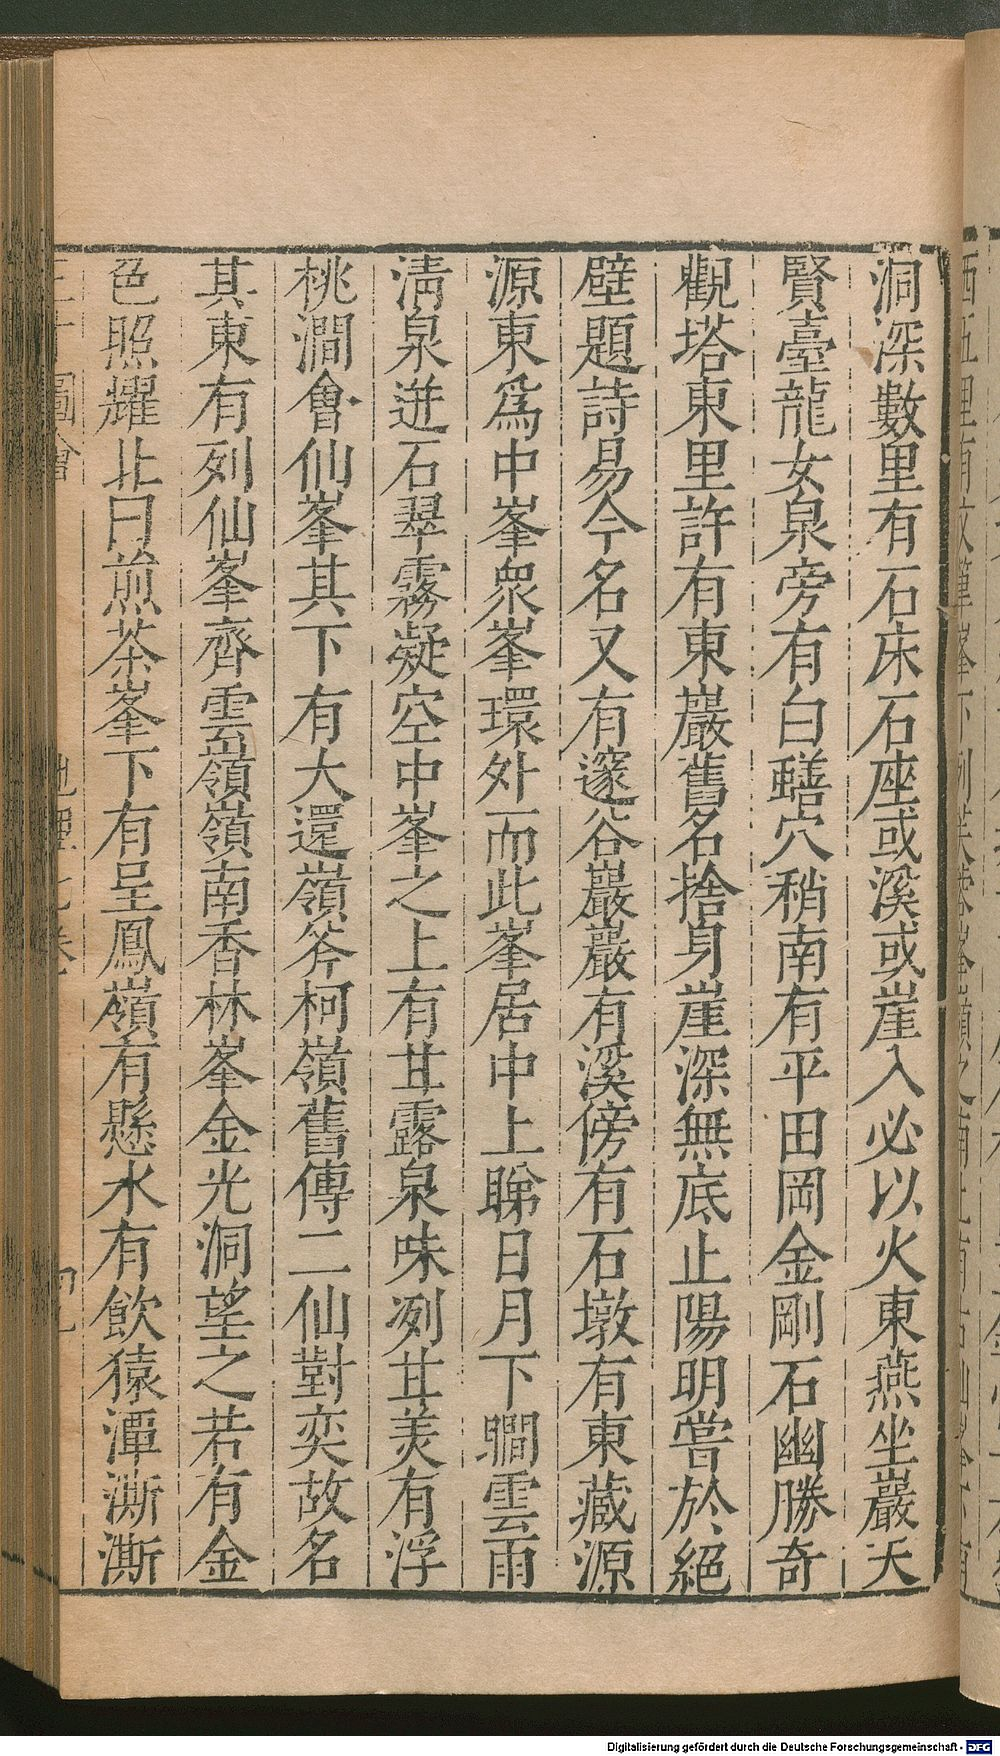 洞深數里有石床石座或溪或崖入必以火東燕坐巖天
賢臺龍女泉旁有白蟮穴稍南有平田岡金剛石幽勝奇
觀塔東里許有東巖舊名捨身崖深無底止陽明嘗於絕
壁題詩易今名又有邃谷巖巖有溪傍有石墩有東藏源
源東爲中峯衆峯環外而此峯居中上睇日月下瞷雲雨
淸泉迸石翠霧凝空中峯之上有甘露泉味冽甘美有浮
桃澗會仙峯其下有大還嶺斧柯嶺舊傳二仙對奕故名
其東有列仙峯齊雲嶺嶺南香林峯金光洞望之若有金
色照耀北曰煎茶峯下有呈鳳嶺有懸水有飲猿潭澌澌
Digitalisierung gefördert durch die Deutsche Forschungsgemeinschaft - DFG